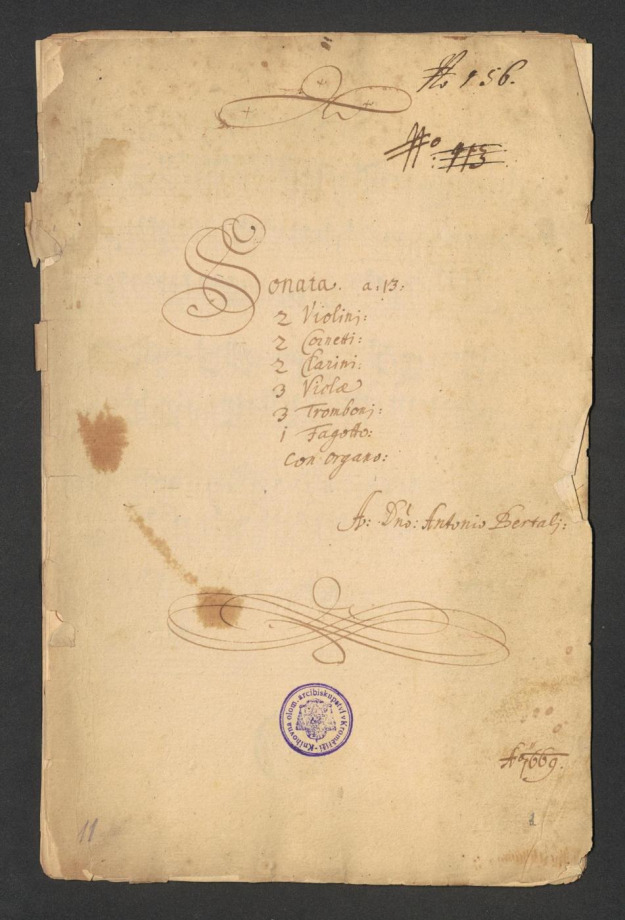 No 156.
No: 113
Sonata. a:13:
2 Violinj:
2 Cornetti:
2 Clarini:
3 Violæ
3 Trombonj:
1 Fagotto:
con organo:
A: Dnō: Antonio Bertalj:
Knihovna olom. arcibiskupství v Kroměříži
Aō 1669.
1
11